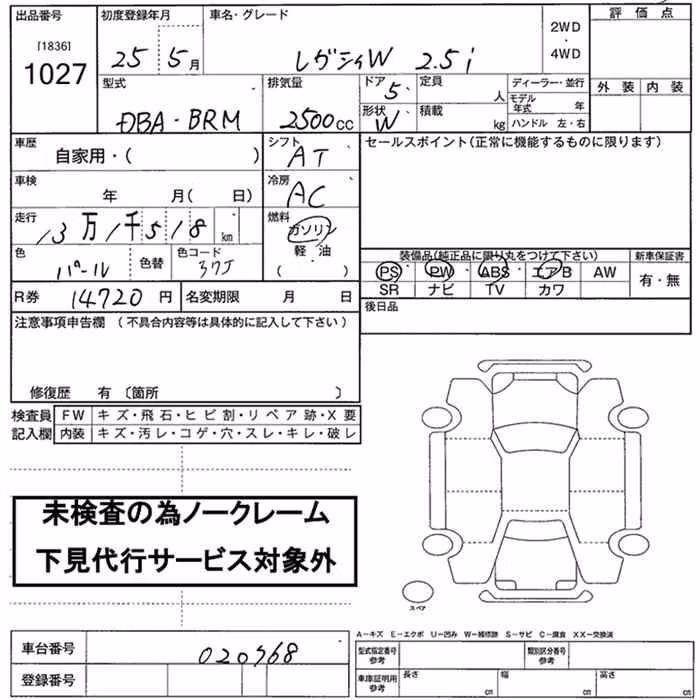 出品番号
[1836]
1027
初度登録年月
25 5月
車名・グレード
レガシィW 2.5i
2WD
・
4WD
評価点
外装 内装
型式
DBA-BRM
排気量
2500cc
ドア
5
形状
W
定員
人
積載
kg
ディーラー・並行
モデル年式 年
ハンドル 左・右
車歴
自家用・( )
シフト
AT
セールスポイント(正常に機能するものに限ります)
車検
年 月( 日)
冷房
AC
走行
13万1千518km
燃料
ガソリン
軽・油
( )
色
パール
色替
色コード
37J
装備品(純正品に限り丸をつけて下さい)
新車保証書
PS PW ABS エアB AW
SR ナビ TV カワ
有・無
R券 14720円
名変期限 月 日
後日品
注意事項申告欄 (不具合内容等は具体的に記入して下さい)
修復歴 有 〔箇所 〕
検査員記入欄
FW キズ・飛石・ヒビ割・リペア跡・X要
内装 キズ・汚レ・コゲ・穴・スレ・キレ・破レ
未検査の為ノークレーム
下見代行サービス対象外
スペア
A-キズ E-エクボ U-凹み W-補修跡 S-サビ C-腐食 XX-交換済
車台番号 020768
登録番号
型式指定番号 参考
類別区分番号 参考
車庫証明用 参考
長さ cm
幅 cm
高さ cm